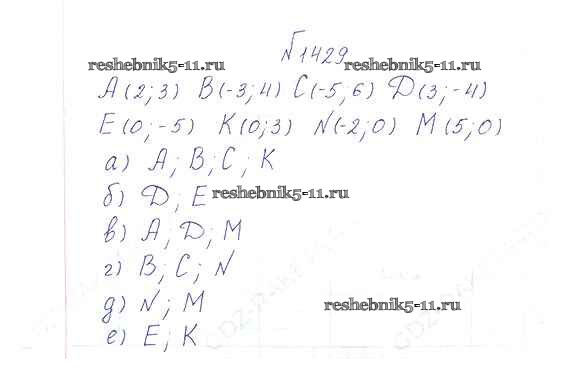 №1429
reshebnik5-11.ru reshebnik5-11.ru
A(2; 3) B(-3; 4) C(-5, 6) D(3; -4)
E(0; -5) K(0; 3) N(-2; 0) M(5; 0)
а) A; B; C; K
б) D; E reshebnik5-11.ru
в) A; D; M
г) B; C; N
д) N; M reshebnik5-11.ru
е) E; K